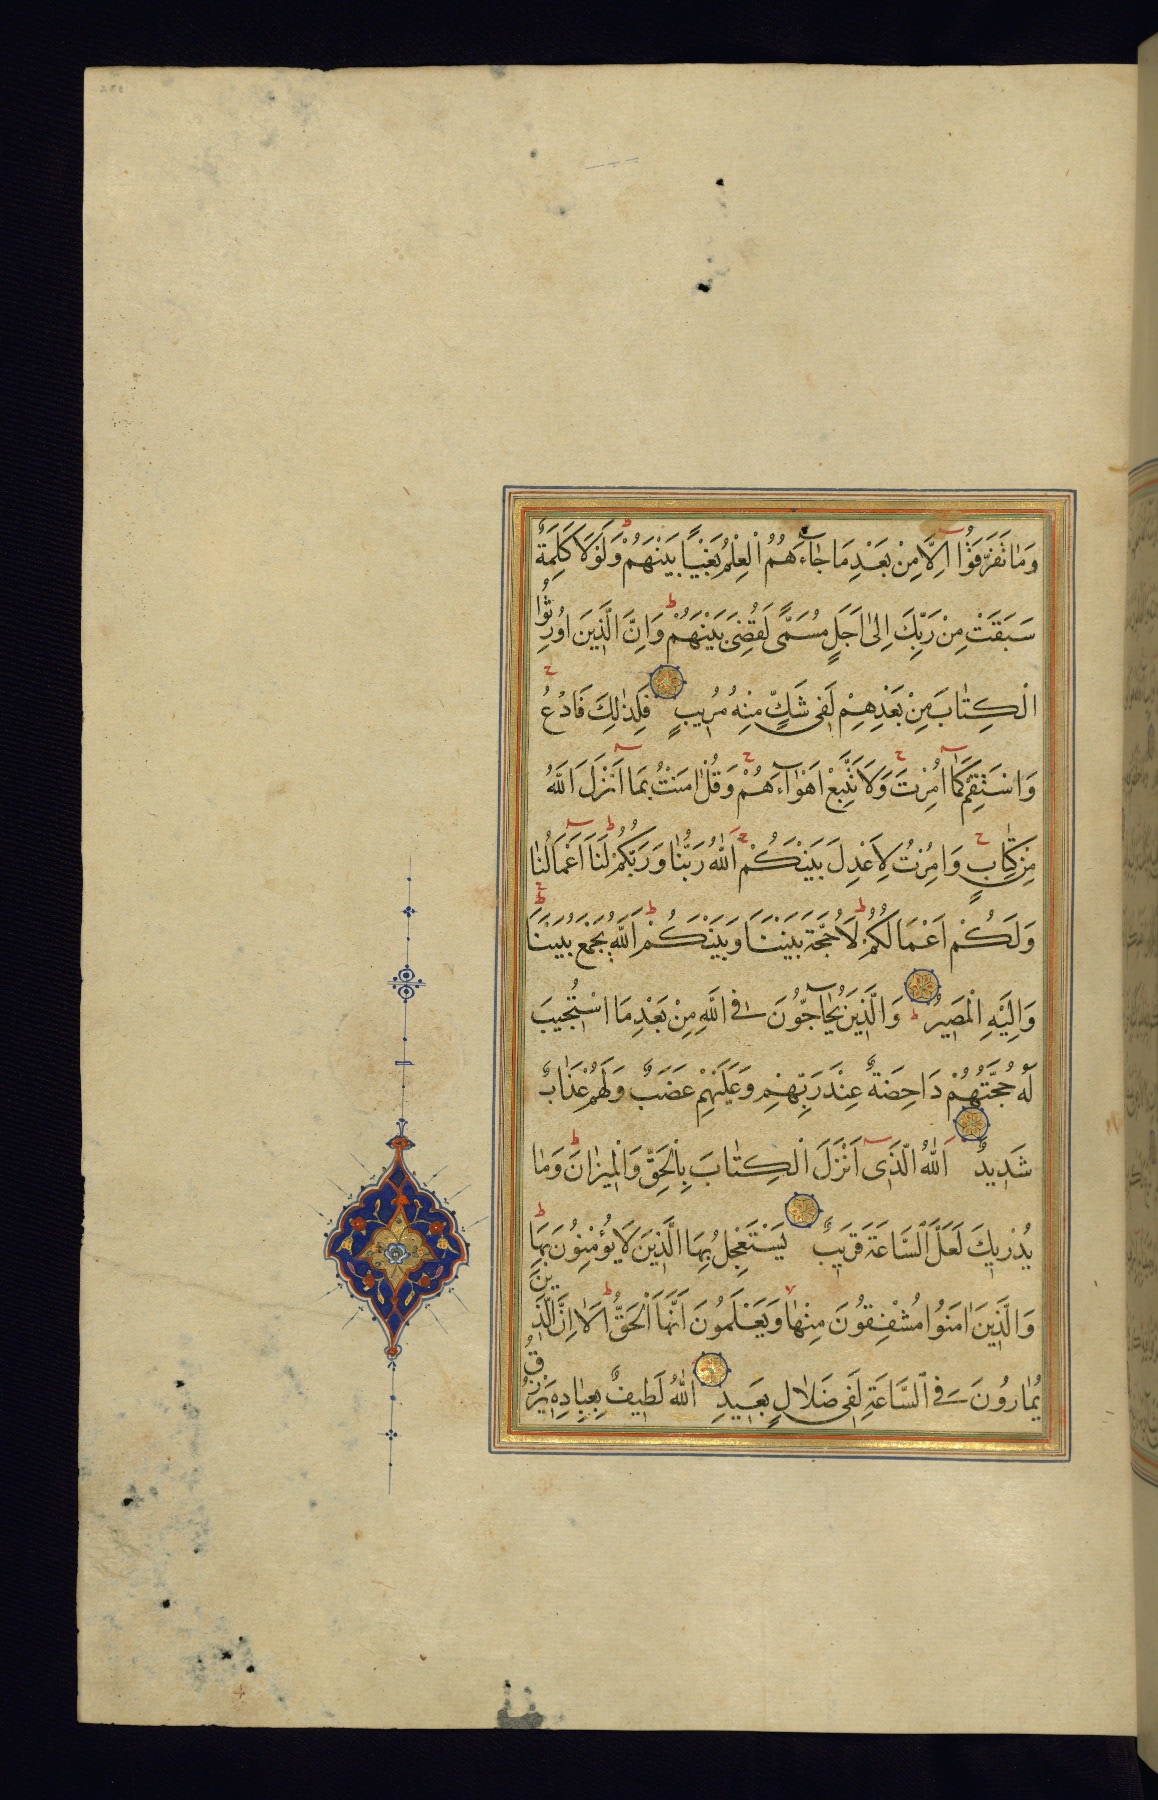 وَمَا تَفَرَّقُوا اِلَّا مِنْ بَعْدِ مَا جَاءَهُمُ الْعِلْمُ بَغْيًا بَيْنَهُمْ وَلَوْلَا كَلِمَةٌ
سَبَقَتْ مِنْ رَبِّكَ اِلٰى اَجَلٍ مُسَمًّى لَقُضِيَ بَيْنَهُمْ وَاِنَّ الَّذِينَ اُورِثُوا
الْكِتٰابَ مِنْ بَعْدِهِمْ لَفِى شَكٍّ مِنْهُ مُرِيبٍ فَلِذٰلِكَ فَادْعُ
وَاسْتَقِمْ كَمَا اُمِرْتَ وَلَا تَتَّبِعْ اَهْوَاءَهُمْ وَقُلْ اٰمَنْتُ بِمَا اَنْزَلَ اللّٰهُ
مِنْ كِتٰابٍ وَاُمِرْتُ لِاَعْدِلَ بَيْنَكُمْ اَللّٰهُ رَبُّنٰا وَرَبُّكُمْ لَنَا اَعْمَالُنٰا
وَلَكُمْ اَعْمَالُكُمْ لَا حُجَّةَ بَيْنَنَا وَبَيْنَكُمْ اَللّٰهُ يَجْمَعُ بَيْنَنَا
وَاِلَيْهِ الْمَصِيرُ وَالَّذِينَ يُحَاجُّونَ فِى اللّٰهِ مِنْ بَعْدِ مَا اسْتُجِيبَ
لَهُ حُجَّتُهُمْ دَاحِضَةٌ عِنْدَ رَبِّهِمْ وَعَلَيْهِمْ غَضَبٌ وَلَهُمْ عَذَابٌ
شَدِيدٌ اَللّٰهُ الَّذِى اَنْزَلَ الْكِتٰابَ بِالْحَقِّ وَالْمِيزٰانَ وَمٰا
يُدْرِيكَ لَعَلَّ السَّاعَةَ قَرِيبٌ يَسْتَعْجِلُ بِهَا الَّذِينَ لَا يُؤْمِنُونَ بِهَا
وَالَّذِينَ اٰمَنُوا مُشْفِقُونَ مِنْهٰا وَيَعْلَمُونَ اَنَّهَا الْحَقُّ اَلَا اِنَّ الَّذِينَ
يُمٰارُونَ فِى السَّاعَةِ لَفِى ضَلٰالٍ بَعِيدٍ اَللّٰهُ لَطِيفٌ بِعِبٰادِهِ يَرْزُقُ